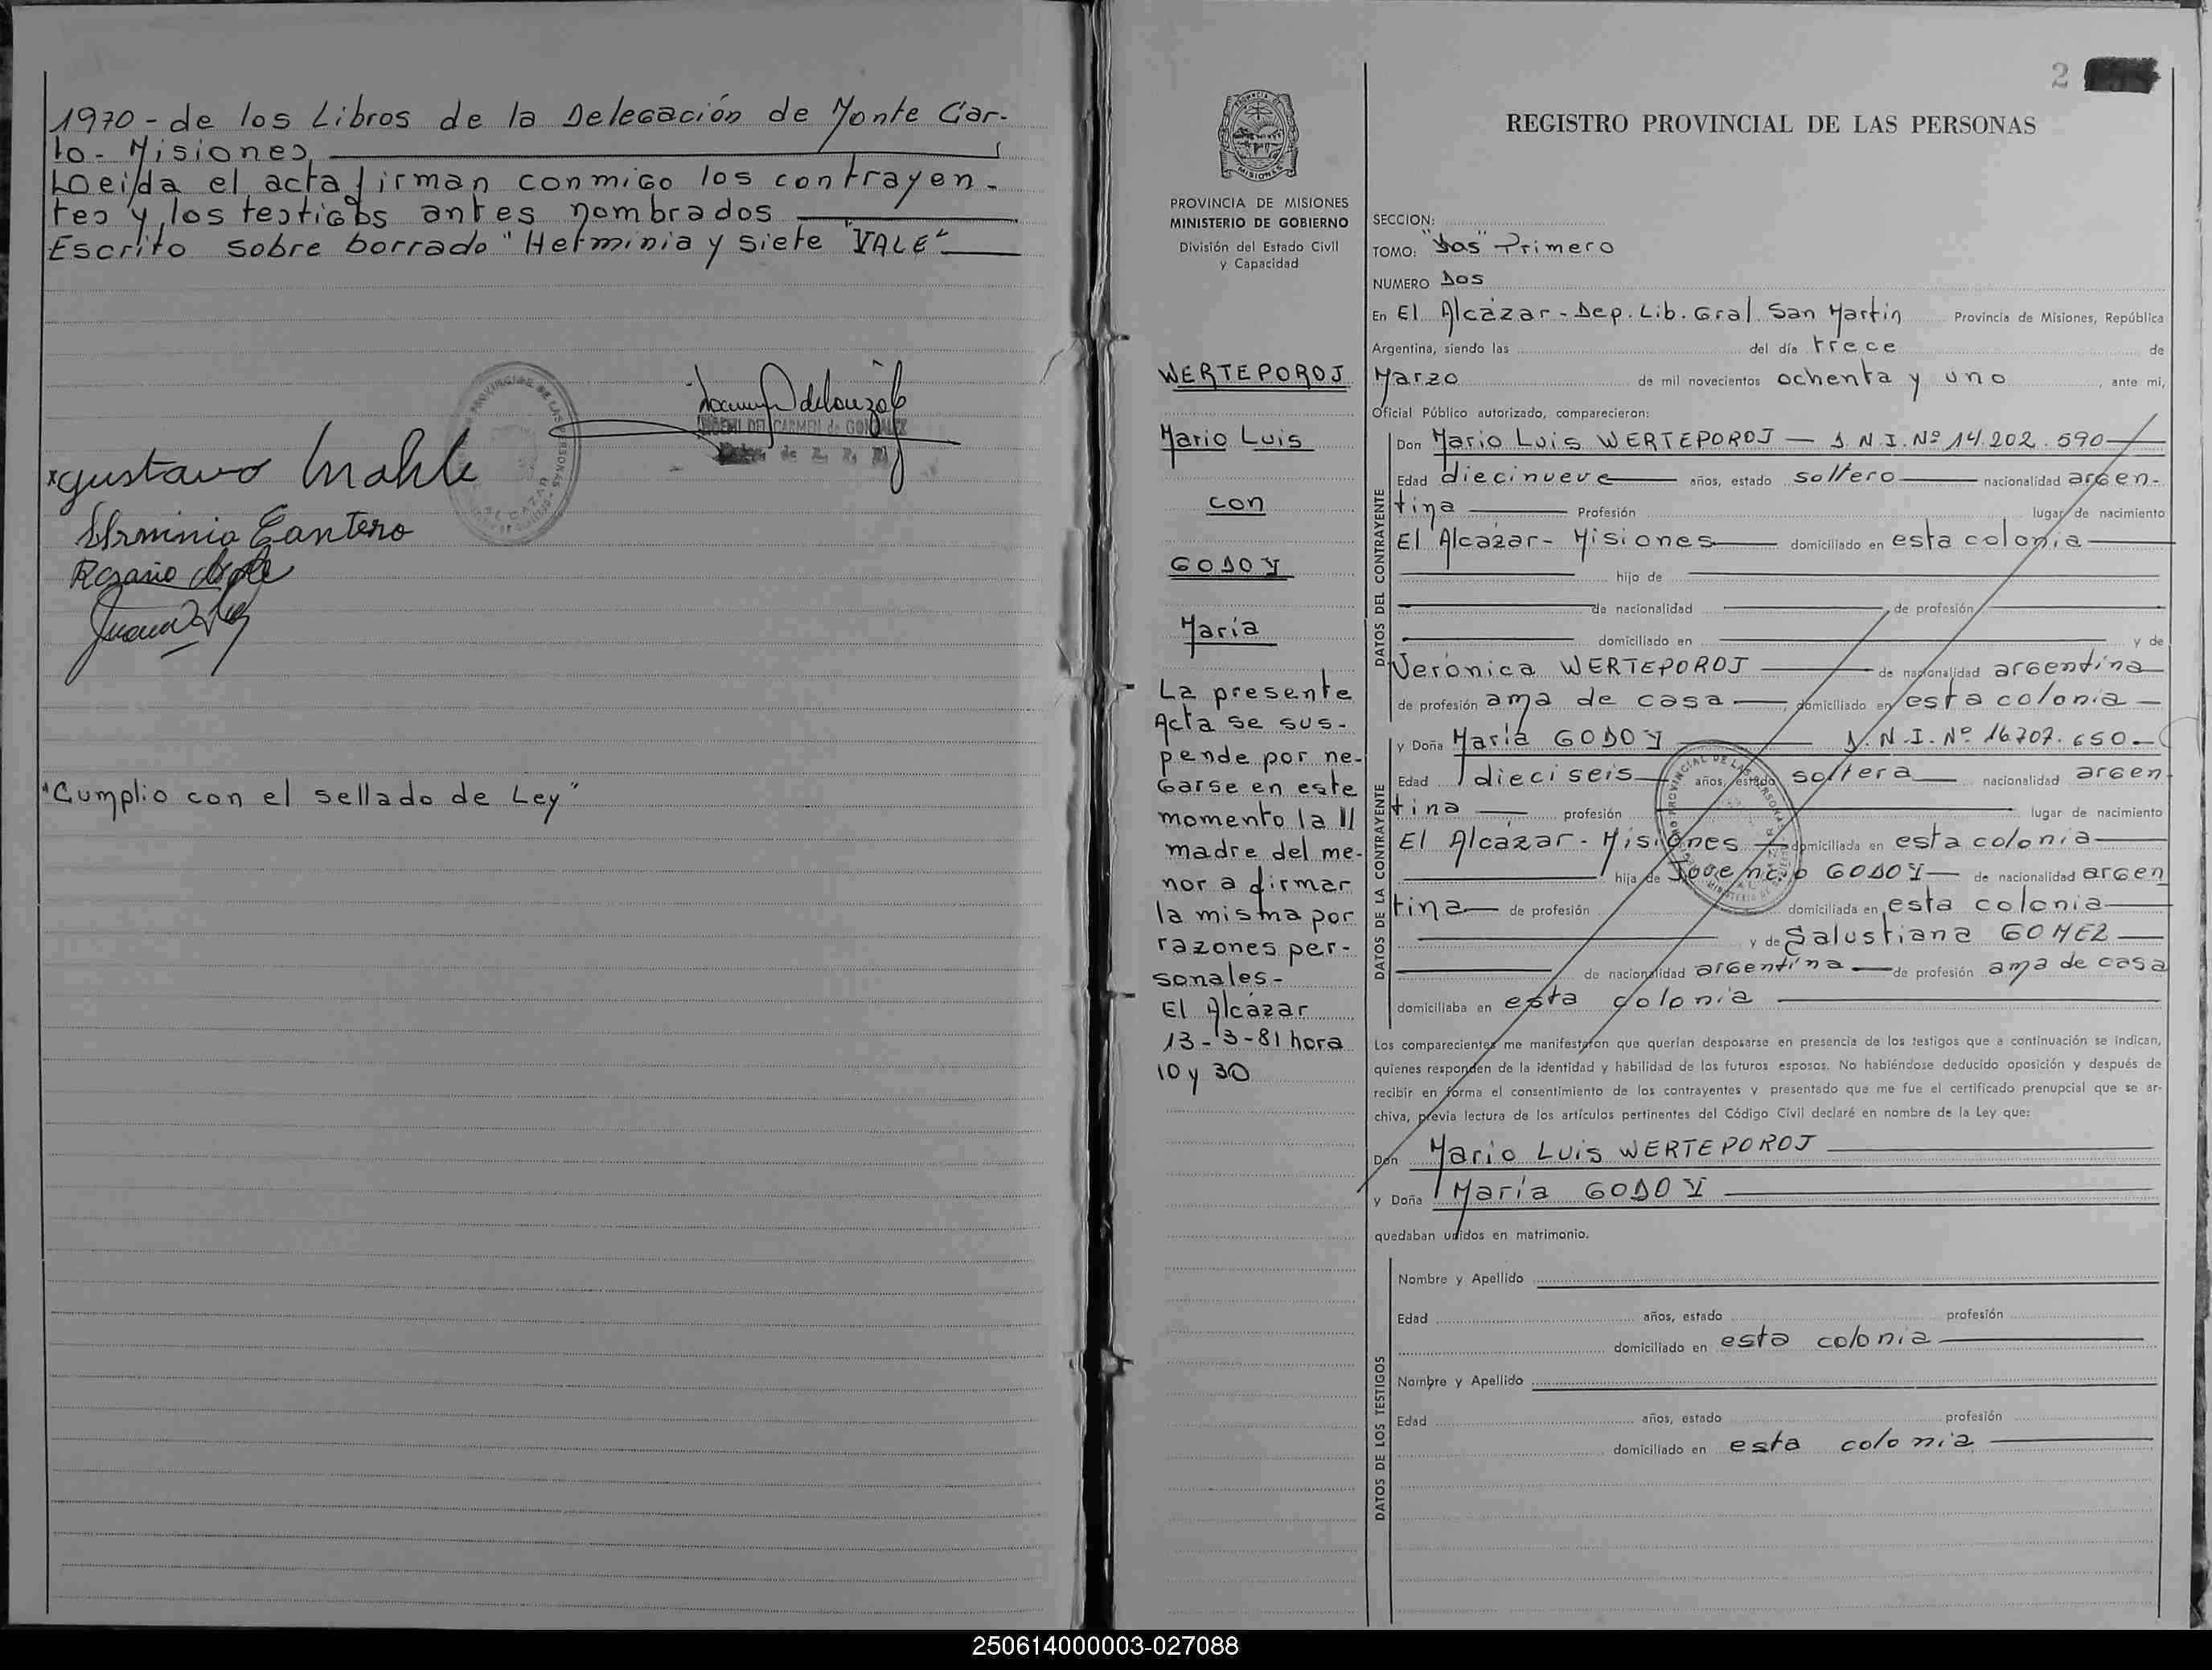 1970 - de los Libros de la Delegación de Monte Car-
lo - Misiones
Leída el acta firman conmigo los contrayen-
tes y los testigos antes nombrados
Escrito sobre borrado "Herminia y siete "VALE"
Gustavo
Herminia Cantero
Rosario
"Cumplio con el sellado de Ley"
2
PROVINCIA DE MISIONES
MINISTERIO DE GOBIERNO
División del Estado Civil
y Capacidad
WERTEPOROJ
Mario Luis
con
GODOY
María
La presente
Acta se sus-
pende por ne-
garse en este
momento la
madre del me-
nor a firmar
la misma por
razones per-
sonales-
El Alcázar
13-3-81 hora
10 y 30
REGISTRO PROVINCIAL DE LAS PERSONAS
SECCION:
TOMO: "Dos" Primero
NUMERO Dos
En El Alcázar - Dep. Lib. Gral San Martín Provincia de Misiones, República
Argentina, siendo las del día trece de
Marzo de mil novecientos ochenta y uno, ante mi,
Oficial Público autorizado, comparecieron:
DATOS DEL CONTRAYENTE
Don Mario Luis WERTEPOROJ - D.N.I. Nº 14.202.590
Edad diecinueve años, estado soltero nacionalidad argen-
tina Profesión lugar de nacimiento
El Alcázar - Misiones domiciliado en esta colonia
hijo de
de nacionalidad de profesión
domiciliado en y de
Verónica WERTEPOROJ de nacionalidad argentina
de profesión ama de casa domiciliado en esta colonia
DATOS DE LA CONTRAYENTE
y Doña María GODOY D.N.I. Nº 16.707.650
Edad dieciseis años, estado soltera nacionalidad argen-
tina profesión lugar de nacimiento
El Alcázar - Misiones domiciliada en esta colonia
hija de Jovencio GODOY de nacionalidad argen
tina de profesión domiciliada en esta colonia
y de Salustiana GOMEZ
de nacionalidad argentina de profesión ama de casa
domiciliaba en esta colonia
Los comparecientes me manifestaron que querían desposarse en presencia de los testigos que a continuación se indican,
quienes responden de la identidad y habilidad de los futuros esposos. No habiéndose deducido oposición y después de
recibir en forma el consentimiento de los contrayentes y presentado que me fue el certificado prenupcial que se ar-
chiva, previa lectura de los artículos pertinentes del Código Civil declaré en nombre de la Ley que:
Don Mario Luis WERTEPOROJ
y Doña María GODOY
quedaban unidos en matrimonio.
DATOS DE LOS TESTIGOS
Nombre y Apellido
Edad años, estado profesión
domiciliado en esta colonia
Nombre y Apellido
Edad años, estado profesión
domiciliado en esta colonia
250614000003-027088